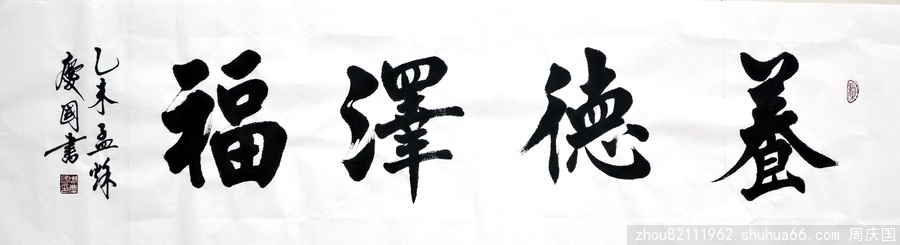 養德澤福
乙未孟秌
慶國書
zhou82111962. shuhua66. com 周庆国